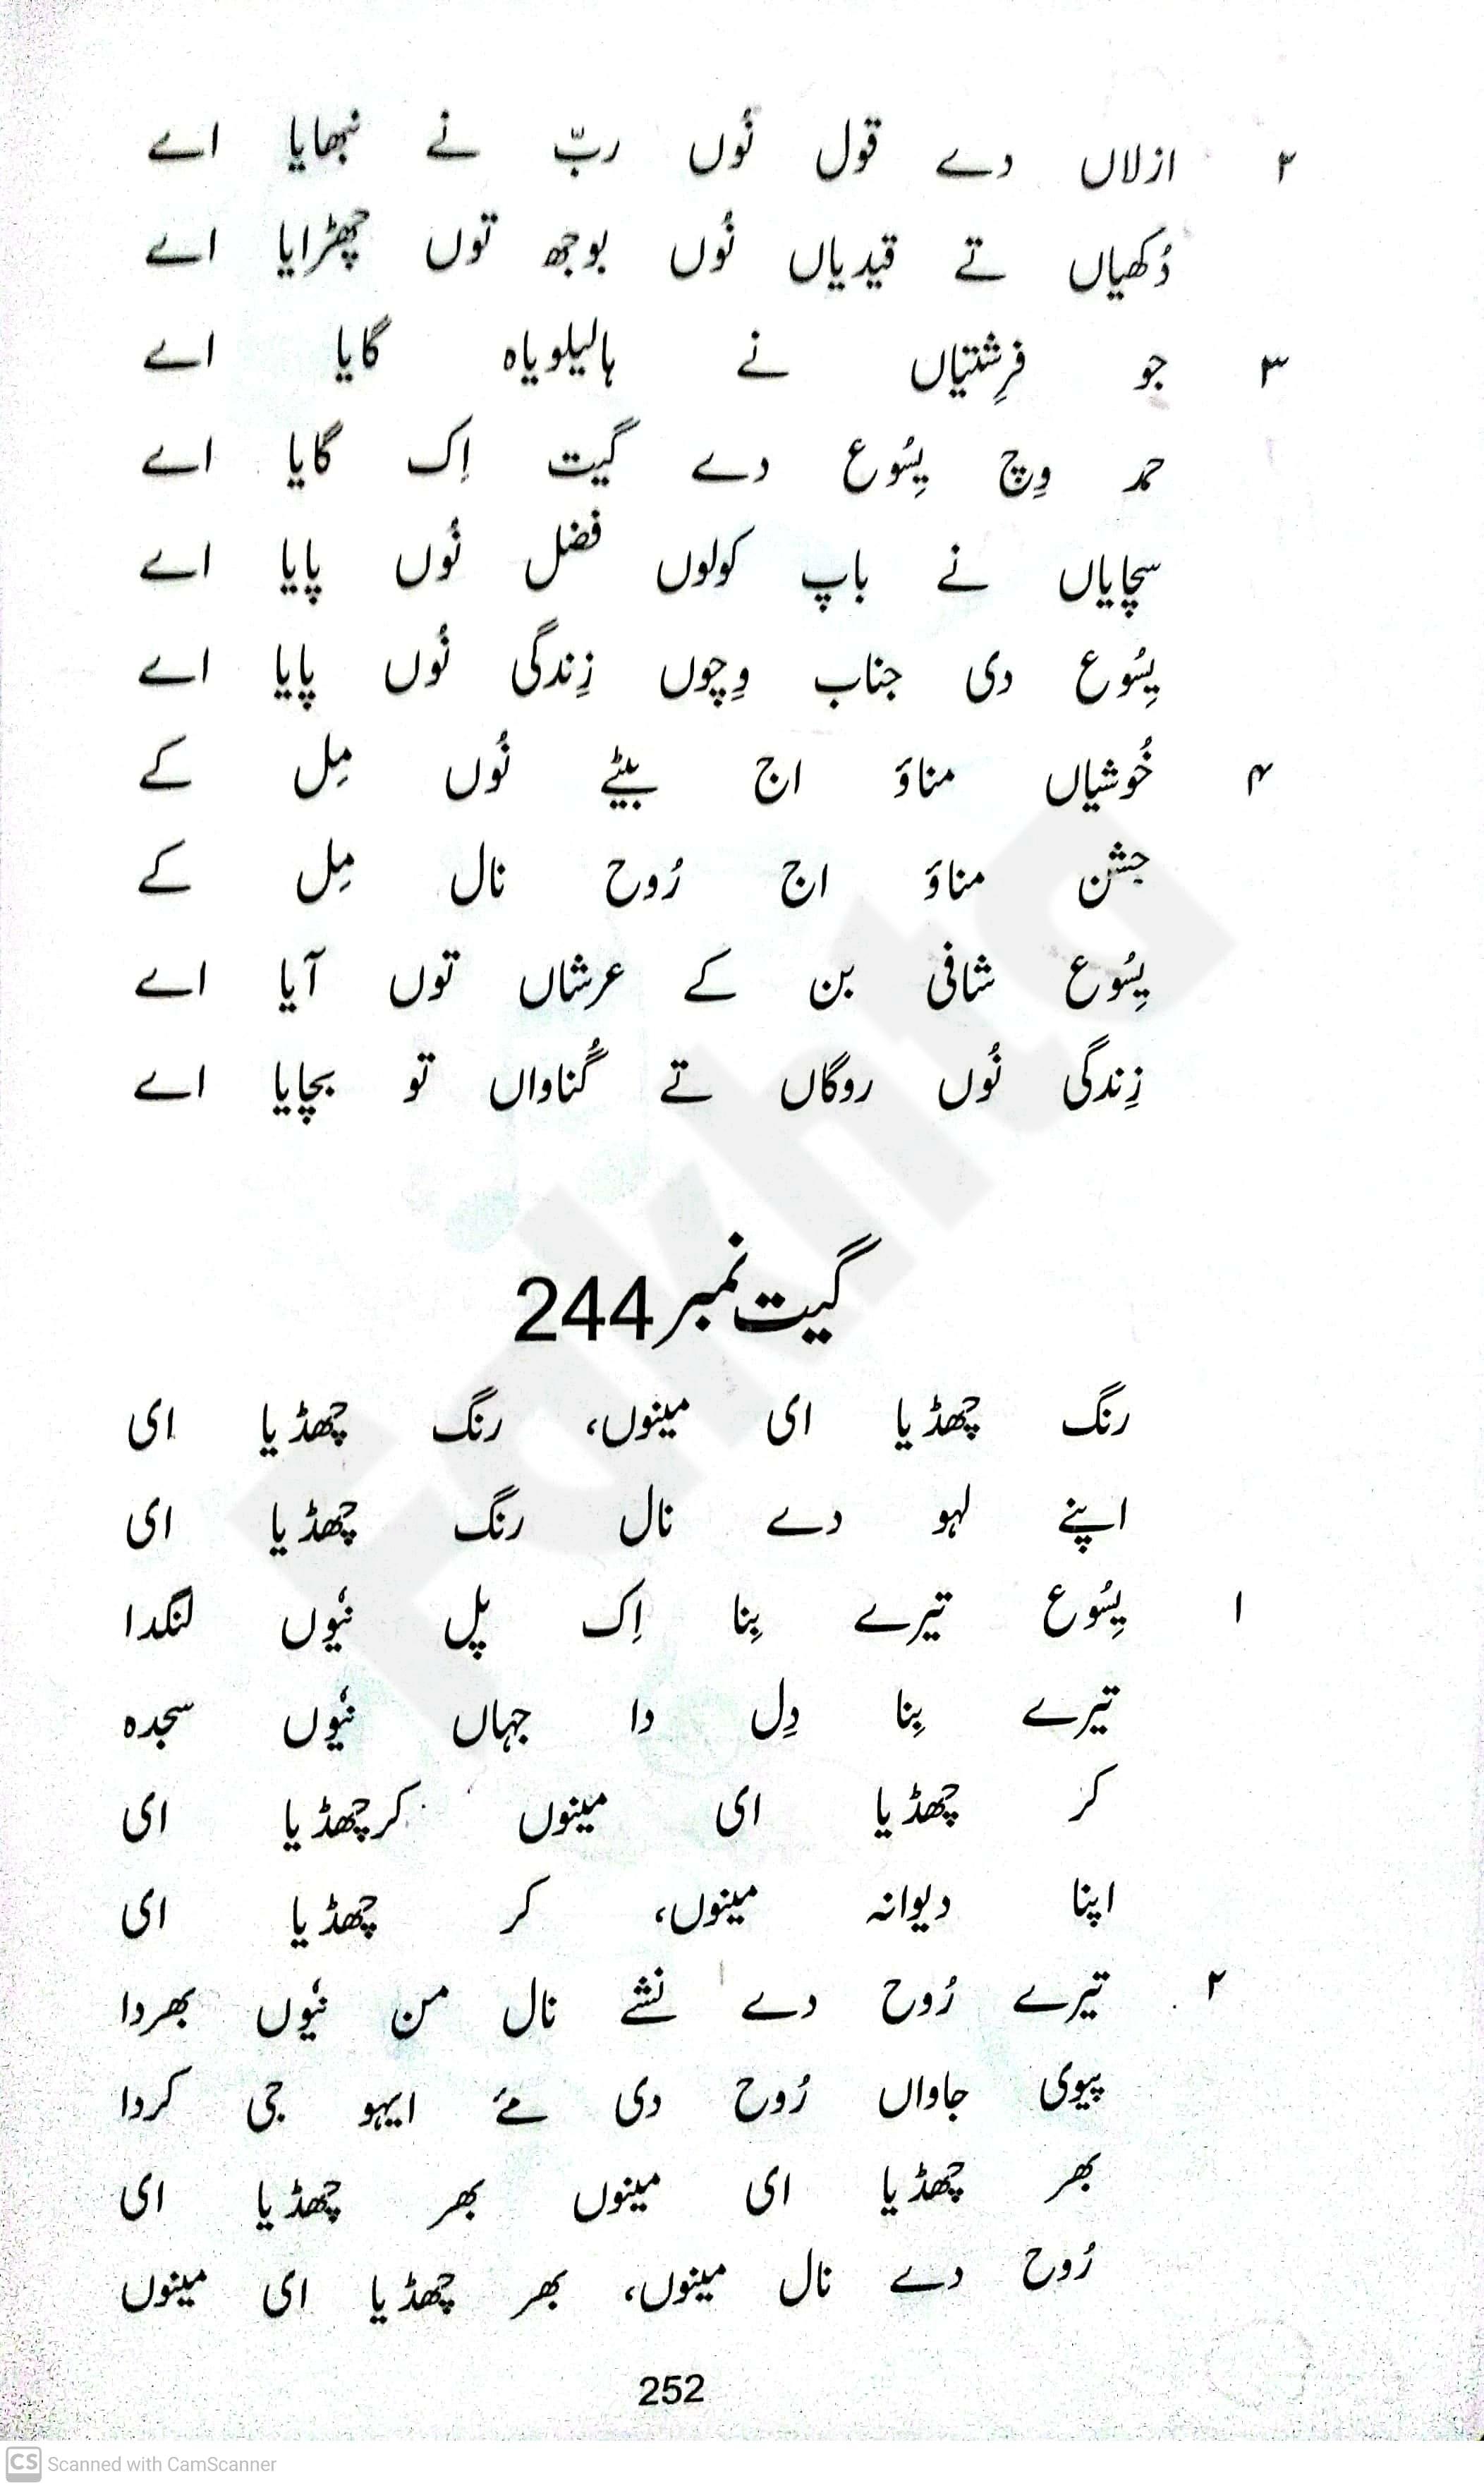 ۲ ازلاں دے قول نُوں ربّ نے نبھایا اے
دُکھیاں تے قیدیاں نُوں بوجھ توں چھڑایا اے
۳ جو فرِشتیاں نے ہالیلویاہ گایا اے
حمد وِچ یِسُوع دے گیت اِک گایا اے
سچایاں نے باپ کولوں فضل نُوں پایا اے
یِسُوع دی جناب وِچوں زِندگی نُوں پایا اے
۴ خُوشیاں مناؤ اج بیٹے نُوں مِل کے
جشن مناؤ اج رُوح نال مِل کے
یِسُوع شافی بن کے عرشاں توں آیا اے
زِندگی نُوں روگاں تے گُناواں تو بچایا اے
گیت نمبر 244
رنگ چھڈیا ای مینوں، رنگ چھڈیا ای
اپنے لہو دے نال رنگ چھڈیا ای
۱ یِسُوع تیرے بِنا اِک پل نیٔوں لنگدا
تیرے بِنا دِل دا جہاں نیٔوں سجدہ
کر چھڈیا ای مینوں کرچھڈیا ای
اپنا دیوانہ مینوں، کر چھڈیا ای
۲ تیرے رُوح دے نشے نال من نیٔوں بھردا
پیوی جاواں رُوح دی مۓ ایہو جی کردا
بھر چھڈیا ای مینوں بھر چھڈیا ای
رُوح دے نال مینوں، بھر چھڈیا ای مینوں
252
CS Scanned with CamScanner
Fakhta